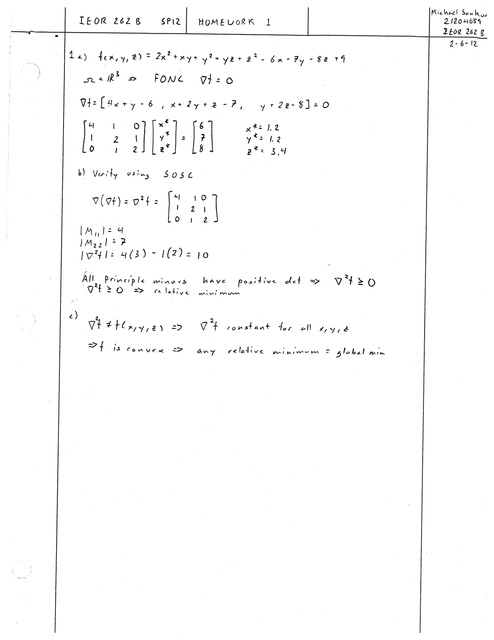 IEOR 262 B SP12 HOMEWORK 1
Michael Sankur
IEOR 262 B
2-6-12
1 a) f(x, y, z) = 2x² + xy + y² + yz + z² - 6x - 7y - 8z + 9
Ω = ℝ³ ⇒ FONC ∇f = 0
∇f = [4x + y - 6 , x + 2y + z - 7, y + 2z - 8] = 0
[4 1 0] [x*] = [6] x* = 1.2
[1 2 1] [y*] = [7] y* = 1.2
[0 1 2] [z*] = [8] z* = 3.4
b) Verify using SOSC
∇(∇f) = ∇²f = [4 1 0]
[1 2 1]
[0 1 2]
|M₁₁| = 4
|M₂₂| = 7
|∇²f| = 4(3) - 1(2) = 10
All principle minors have positive det ⇒ ∇²f ≥ 0
∇²f ≥ 0 ⇒ relative minimum
c)
∇²f ≠ f(x, y, z) ⇒ ∇²f constant for all x, y, z
⇒ f is convex ⇒ any relative minimum = global min